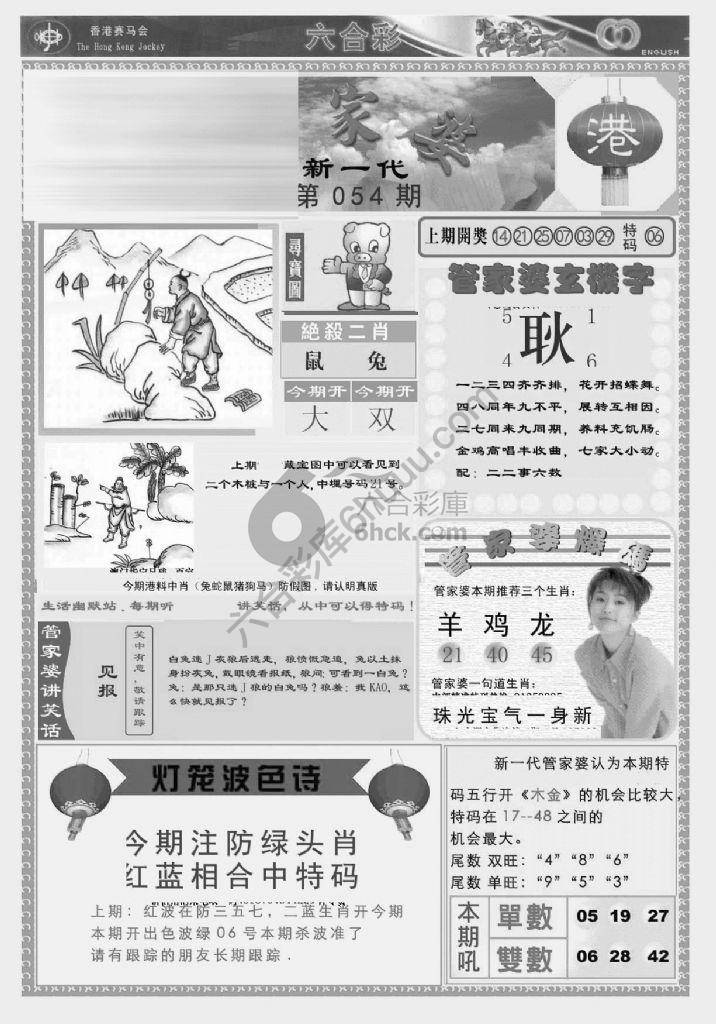 香港赛马会
The Hong Kong Jockey
六合彩
ENGLISH
家婆
新一代
第 054 期
港
尋寶圖
絶殺二肖
鼠 兔
今期开 今期开
大 双
上期開奬 14 21 25 07 03 29 特码 06
管家婆玄機字
5 1
耿
4 6
一二三四齐齐排，花开招蝶舞。
四八同年九不平，展转互相因。
二七同来九同期，养料充饥肠。
金鸡高唱丰收曲，七家大小动。
配：二二事六数
上期 藏宝图中可以看见到
二个木桩与一个人,中埋号码21号。
六合彩庫
6hck.com
六合彩库6huuu.com
今期港料中肖（兔蛇鼠猪狗马）防假图．请认明真版
生活幽默站．每期听 讲笑话，从中可以得特码！
管家婆讲笑话
见报
笑中有意，敬请跟踪
白兔迷J灰狼后逃走，狼愤慨急追，兔以土抹
身扮灰兔，戴眼镜看报纸，狼问：可看到一白兔？
兔：是那只迷J狼的白兔吗？狼羞：我KAO，这
么快就见报了？
管家婆爆碼
管家婆本期推荐三个生肖：
羊 鸡 龙
21 40 45
管家婆一句道生肖：
珠光宝气一身新
灯笼波色诗
今期注防绿头肖
红蓝相合中特码
上期：红波在防三五七，二蓝生肖开今期
本期开出色波绿06号本期杀波准了
请有跟踪的朋友长期跟踪．
新一代管家婆认为本期特
码五行开《木金》的机会比较大，
特码在 17--48 之间的
机会最大。
尾数 双旺：“4” “8” “6”
尾数 单旺：“9” “5” “3”
本期吼
單數 05 19 27
雙數 06 28 42